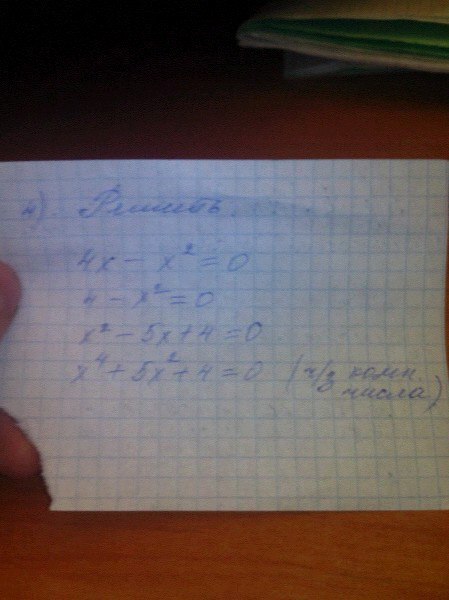 4) Решить.
4x - x² = 0
4 - x² = 0
x² - 5x + 4 = 0
x⁴ + 5x² + 4 = 0 (ч/з комп.
числа)